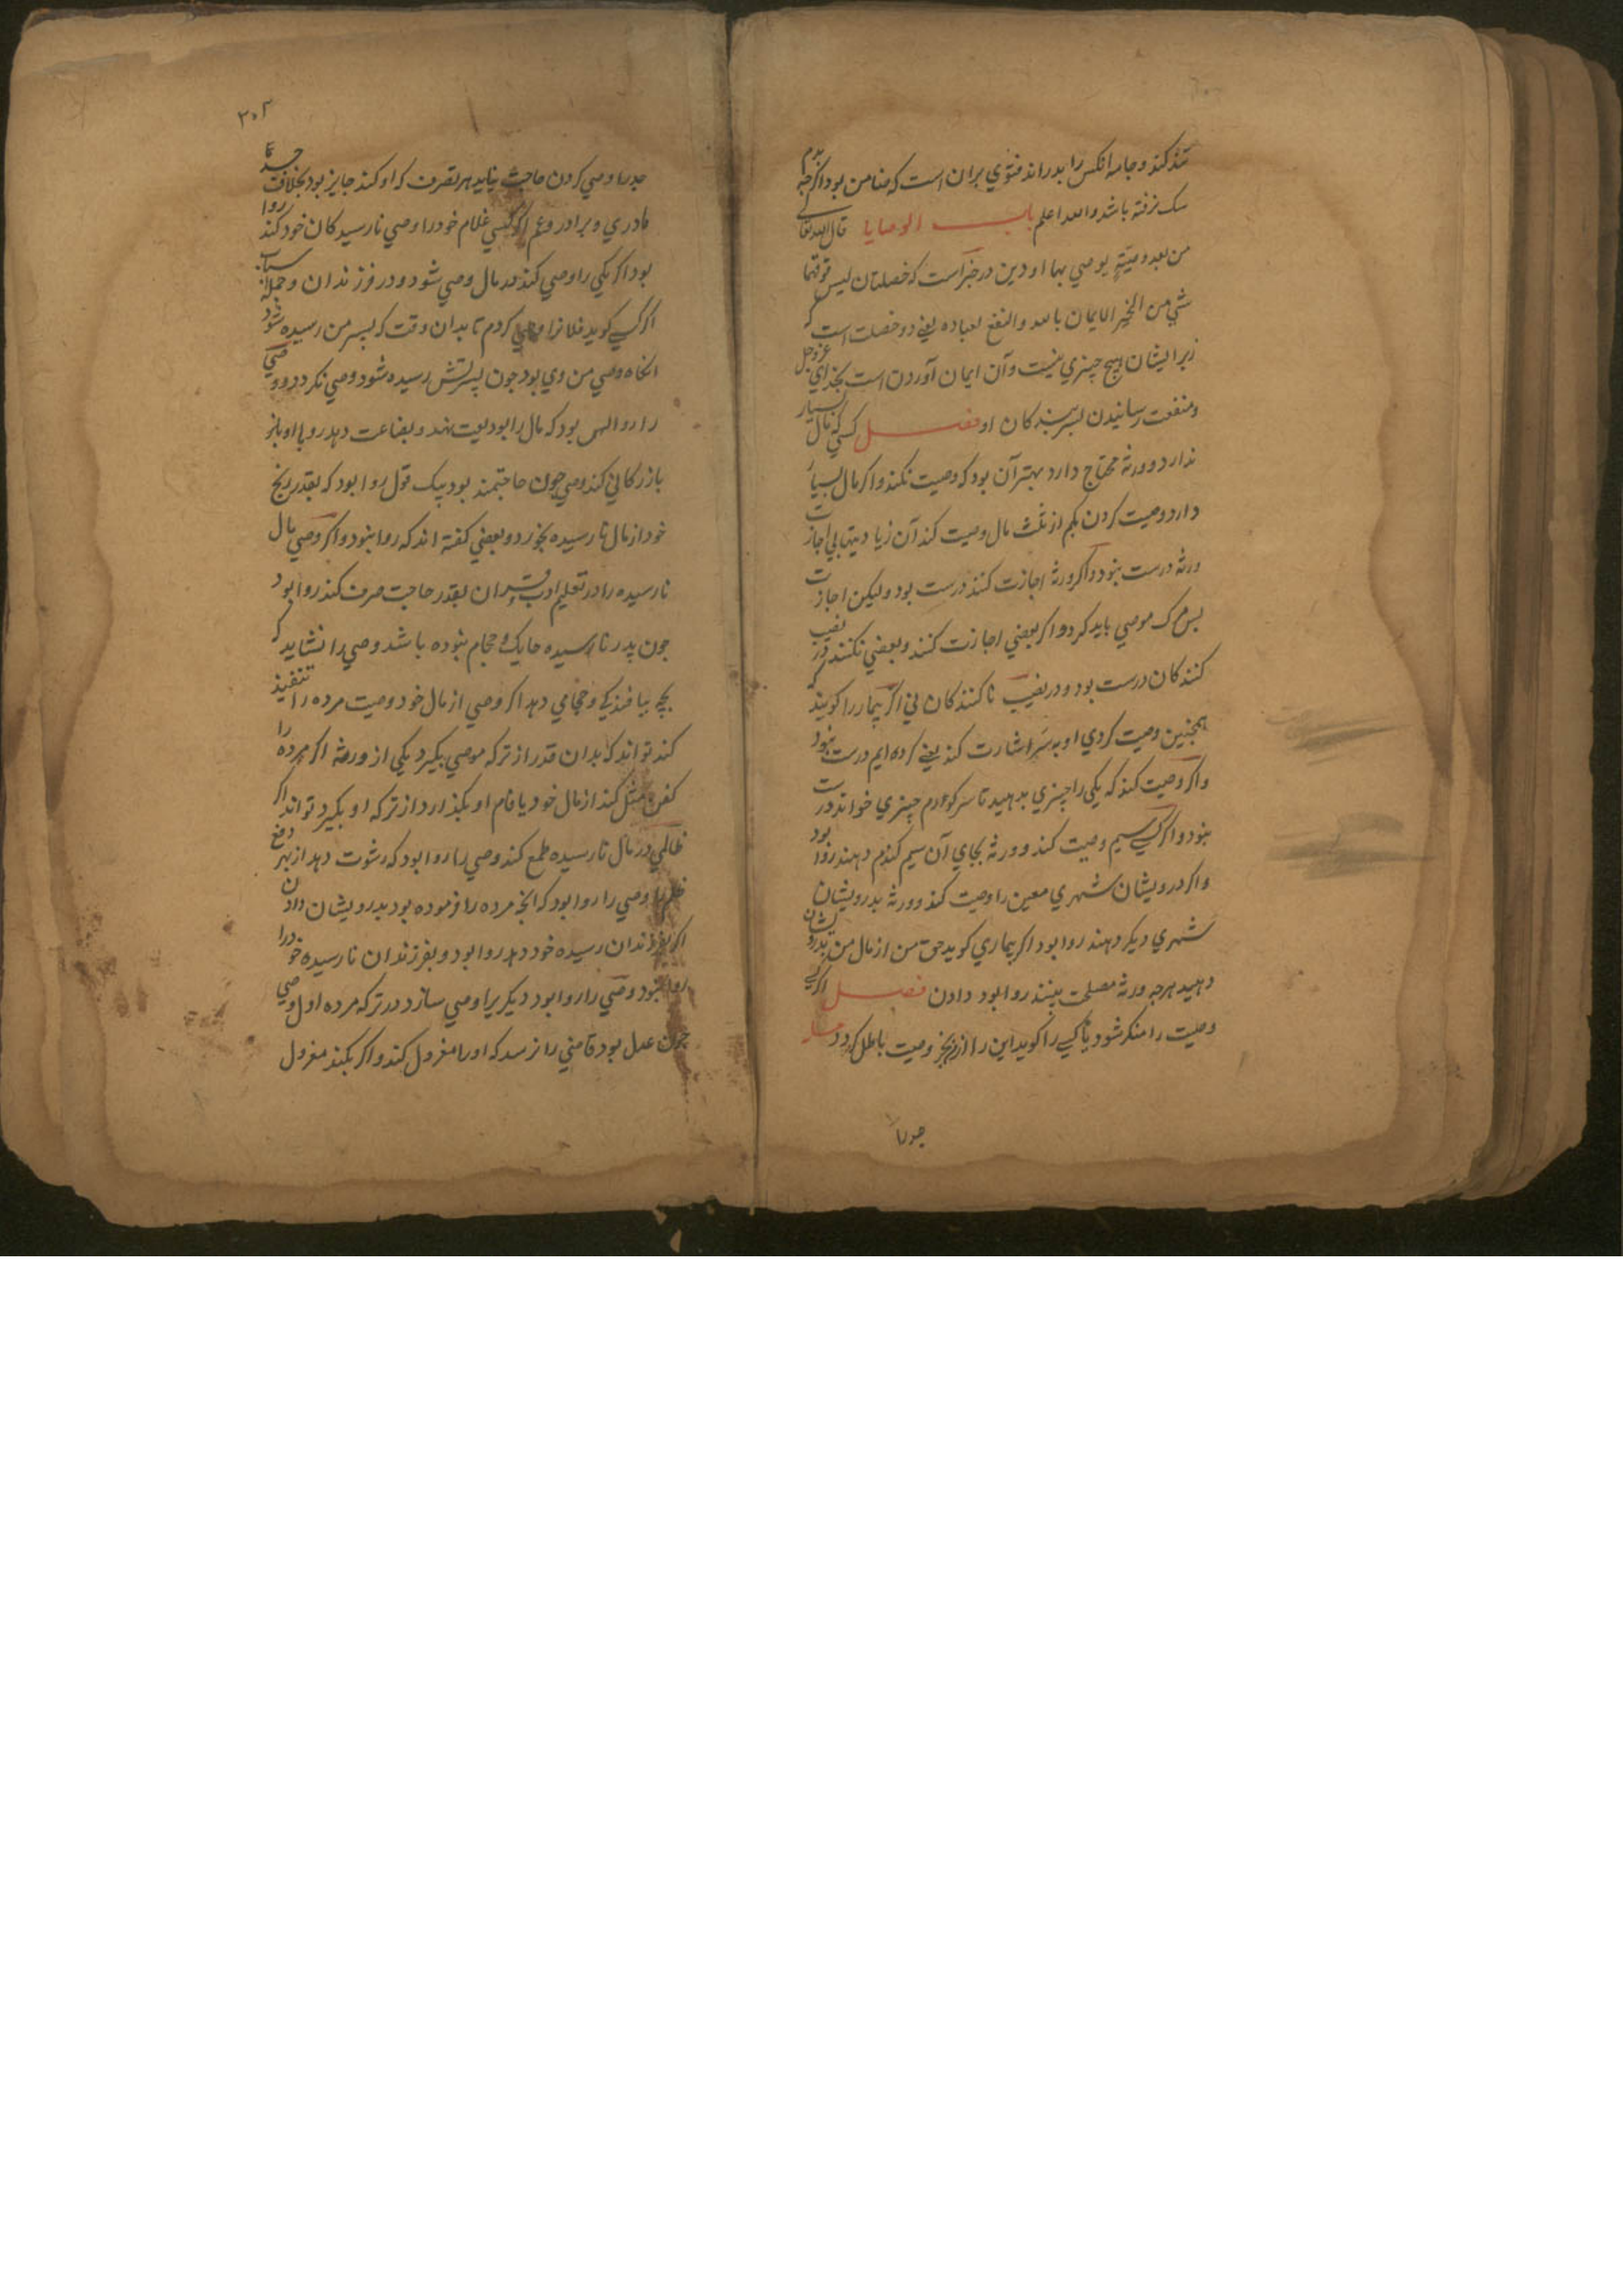 کند و جامه آنکس را بدراند فتوي بران است که ضامن بود اگرچه
سک نرفته باشد والله اعلم باب الوصايا قال الله تعالی
من بعد وصیّةٍ یوصي بها او دین در خبر است که خصلتان لیس فوقهما
شي من الخیر الایمان بالله والنفع لعباده یعني دو خصلت است که
زبر ایشان هیچ چیزي نیست و آن ایمان آوردن است بخداي عزوجل
و منفعت رسانیدن بر بندکان او فصل کسي که مال بسیار
ندارد و ورثه محتاج دارد بهتر آن بود که وصیت نکند و اکر مال بسیار
دارد وصیت کردن بکم از ثلث مال وصیت کند آن زیادیتها بي اجازت
ورثه درست نبود و اکر ورثه اجازت کنند درست بود و لیکن اجازت
پس مرک موصي باید کرد و اکر بعضي اجازت کنند و بعضي نکنند در نصیب
کنندکان درست بود و در نصیب ناکنندکان ني اکر بیمار را کویند که
همچنین وصیت کردي او بسر اشارت کند یعني کرده ایم درست نبود
واکر وصیت کند که یکي را چیزي بدهید تا سر کورم چیزي خواند درست
نبود و اکر کسي بسیم وصیت کند و ورثه بجاي آن سیم کندم دهند روا بود
و اکر درویشان شهري معین را وصیت کند و ورثه بدرویشان
شهري دیکر دهند روا بود اکر بیماري کوید حق من از مال من بدرویشان
دهید هرچه ورثه مصلحت بینند روا بود دادن فصل اکر کسي
وصیت را منکر شود یا کسي را کوید این را وصیت باطل کردد
جدرا
۳۰۲
جدرا وصي کردن حاجت نیاید هر تصرف که او کند جایز بود بخلاف جد
مادري و برادر و عم اکر کسي غلام خود را وصي نارسیدکان خود کند روا
بود اکر یکي را وصي کند در مال وصي شود و در فرزندان و جمله اسباب
اکر کسي کوید فلانرا وصي کردم تا بدان وقت که پسر من رسیده شود
انکاه وصي من وي بود چون پسرش رسیده شود وصي نکردد و وصي
را روا بود که مال را بودیعت نهد و بضاعت دهد
بازرکاني کند وصي چون حاجتمند بود بیک قول روا بود که بقدر رنج
خود از مال نارسیده بخورد و بعضي کفته اند که روا نبود و اکر وصي مال
نارسیده را در تعلیم ادب و قران بقدر حاجت صرف کند روا بود
چون پدر نارسیده حایک و حجام نبوده باشد وصي را نشاید که
بچه ببافندکي و حجامي دهد اکر وصي از مال خود وصیت مرده را تنفیذ
کند تواند که بدان قدر از ترکه موصي بکیرد یکي از ورثه اکر مرده را
کفن مثل کند از مال خود یا وام او بکذارد از ترکه او بکیرد تواند اکر
ظالمي در مال نارسیده طمع کند وصي را روا بود که رشوت دهد از بهر دفع
ظلم را وصي را روا بود که آنچه مرده را فرموده بود بدرویشان دادن
اکر بفرزندان رسیده خود دهد روا بود و بفرزندان نارسیده خود را
روا نبود وصي را روا بود دیکریرا وصي سازد در ترکه مرده اول وصي
چون عدل بود قاضي را نرسد که او را معزول کند و اکر بکند معزول